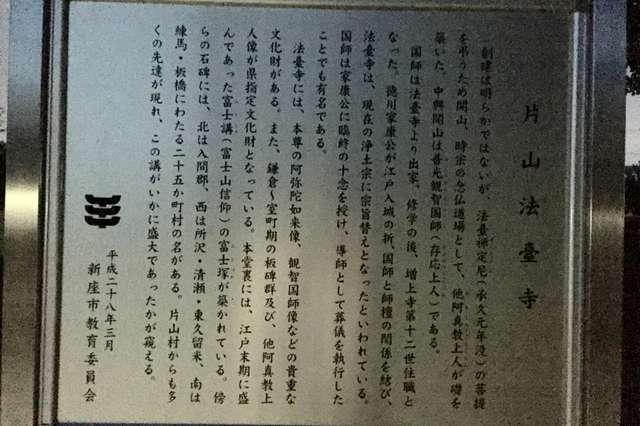 片山法臺寺
創建は明らかではないが、法臺禅定尼（承久元年没）の菩提
を弔うため開山、時宗の念仏道場として、他阿真教上人が礎を
築いた。中興開山は普光観智国師（存応上人）である。
国師は法臺寺より出家、修学の後、増上寺第十二世住職と
なった。徳川家康公が江戸入城の折、国師と師檀の関係を結び、
法臺寺は、現在の浄土宗に宗旨替えとなったといわれている。
国師は家康公に臨終の十念を授け、導師として葬儀を執行した
ことでも有名である。
法臺寺には、本尊の阿弥陀如来像、観智国師像などの貴重な
文化財がある。また、鎌倉～室町期の板碑群及び、他阿真教上
人像が県指定文化財となっている。本堂裏には、江戸末期に盛
んであった富士講（富士山信仰）の富士塚が築かれている。傍
らの石碑には、北は入間郡、西は所沢・清瀬・東久留米、南は
練馬・板橋にわたる二十五か町村の名がある。片山村からも多
くの先達が現れ、この講がいかに盛大であったかが窺える。
平成二十八年三月
新座市教育委員会